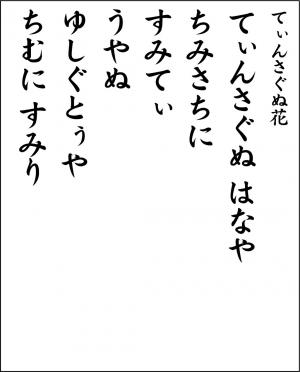 てぃんさぐぬ花
てぃんさぐぬ はなや
ちみさちに
すみてぃ
うやぬ
ゆしぐとぅや
ちむに すみり